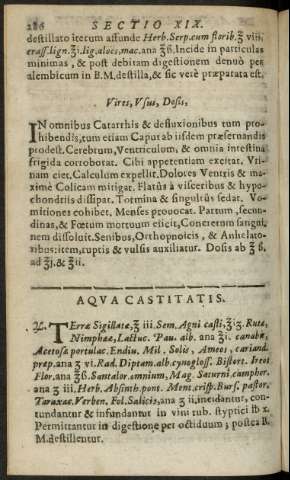 286 SECTIO XIX.
destillato iterum affunde Herb. Serp. cum florib. ℥ viii.
crass. lign. ℥j. lig. aloes, mac. ana ʒß. Incide in particulas
minimas, & post debitam digestionem denuò per
alembicum in B.M. destilla, & sic verè præparata est.
Vires, Vsus, Dosis.
IN omnibus Catarrhis & defluxionibus tum pro-
hibendis, tum etiam Caput ab iisdem præservandis
prodest. Cerebrum, Ventriculum, & omnia intestina
frigida corroborat. Cibi appetentiam excitat. Vri-
nam ciet. Calculum expellit. Dolores Ventris & ma-
ximè Colicam mitigat. Flatus à visceribus & hypo-
chondriis dissipat. Tormina & singultus sedat. Vo-
mitiones cohibet. Menses prouocat. Partum, secun-
dinas, & Fœtum mortuum eiicit, Concretum sangui-
nem dissoluit. Senibus, Orthopnoicis, & Anhelato-
ribus: item, ruptis & vulsis auxiliatur. Dosis ab ʒ 6.
ad ℥j. & ℥ii.
AQVA CASTITATIS.
℞. TErræ Sigillatæ, ℥ iii. Sem. Agni casti, Rutæ,
Nimphææ, Lactuc. Pau. alb. ana canabis,
Acetosæ portulac. Endiu. Mil. Solis, Ameos, coriand.
præp. ana ʒ vi. Rad. Diptam. alb. cynogloss. Bistort. Ireos
Flor. ana ʒß. Santalor. omnium, Mag. Saturni, camphor.
ana ʒ iii. Herb. Absinth. pont. Ment. crisp. Burs. pastor.
Taraxac. Verben. Fol. Salicis, ana ʒ ii, incidantur, con-
tundantur & infundantur in vini rub. styptici lb x.
Permittantur in digestione per octiduum; postea B.
M. destillentur.